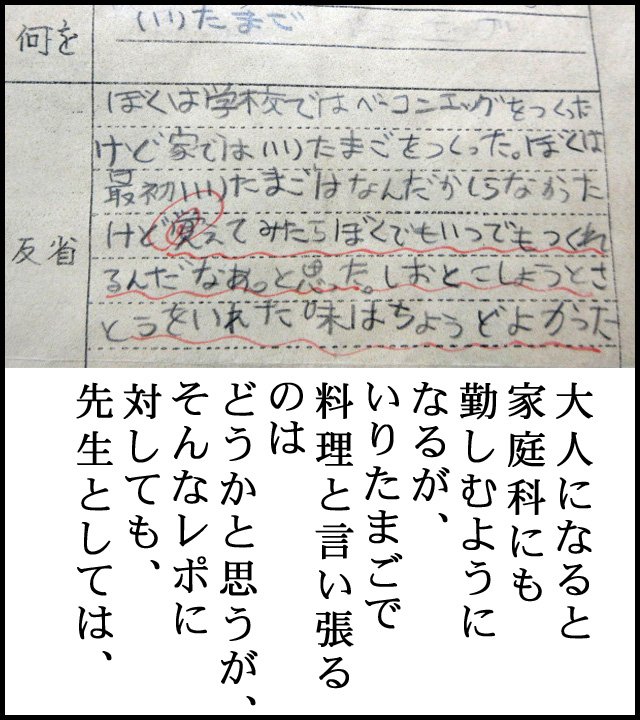 何を
いりたまご
反省
ぼくは学校ではベーコンエッグをつくった
けど家ではいりたまごをつくった。ぼくは
最初いりたまごはなんだかしらなかった
けど覚えてみたらぼくでもいつでもつくれ
るんだなあ。と思った。しおとこしょうとさ
とうをいれた味はちょうどよかった
大人になると
家庭科にも
勤しむように
なるが、
いりたまごで
料理と言い張る
のは
どうかと思うが、
そんなレポに
対しても、
先生としては、